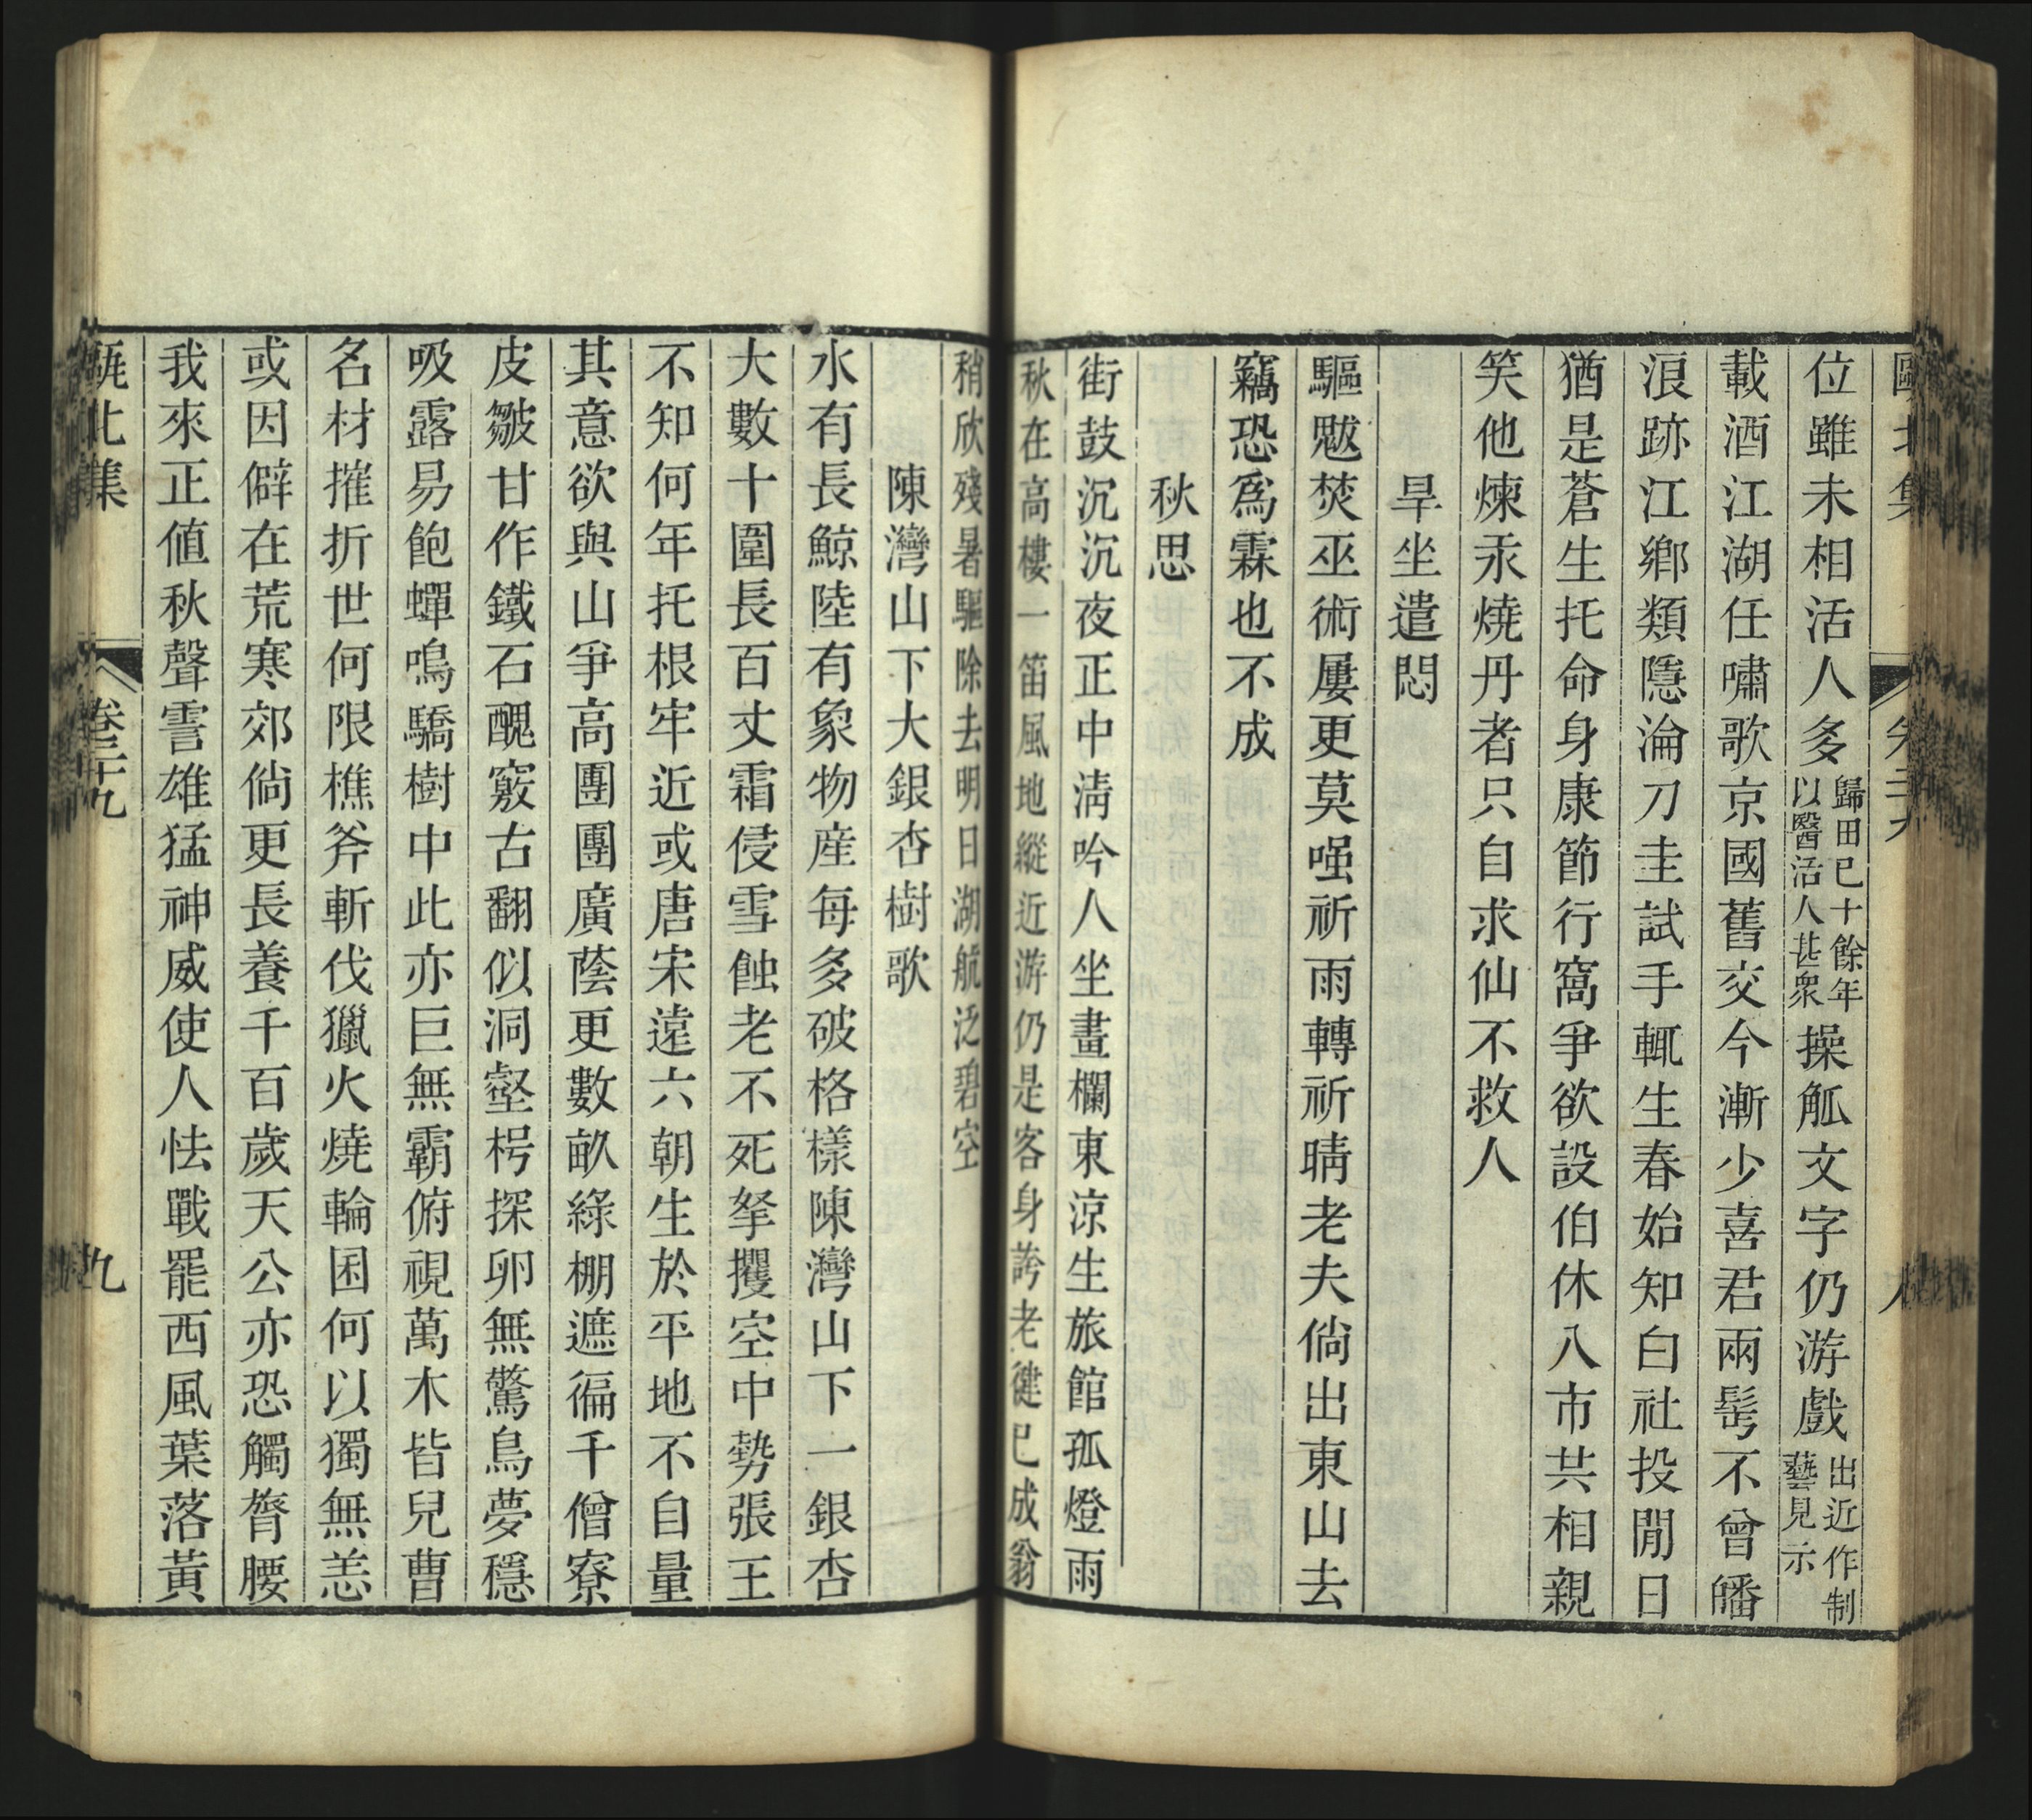 甌北集 卷二十九 八
位雖未相活人多歸田已十餘年以醫活人甚衆操觚文字仍游戲出近作制藝見示
載酒江湖任嘯歌京國舊交今漸少喜君兩髩不曾皤
浪跡江鄉類隱淪刀圭試手輒生春始知白社投閒日
猶是蒼生托命身康節行窩爭欲設伯休入市共相親
笑他煉汞燒丹者只自求仙不救人
旱坐遣悶
驅魃焚巫術屢更莫嗤祈雨轉祈晴老夫倘出東山去
竊恐爲霖也不成
秋思
街鼓沉沉夜正中淸吟人坐畫欄東涼生旅館孤燈雨
秋在高樓一笛風地縱近游仍是客身誇老健已成翁
稍欣殘暑驅除去明日湖航泛碧空
陳灣山下大銀杏樹歌
水有長鯨陸有象物産每多破格樣陳灣山下一銀杏
大數十圍長百丈霜侵雪蝕老不死拏攫空中勢張王
不知何年托根牢近或唐宋遠六朝生於平地不自量
其意欲與山爭高團團廣蔭更數畝綠棚遮徧千僧寮
皮皺甘作鐵石醜竅古翻似洞壑枵探卵無驚鳥夢穩
吸露易飽蟬鳴驕樹中此亦巨無霸俯視萬木皆兒曹
名材摧折世何限樵斧斬伐獵火燒輪囷何以獨無恙
或因僻在荒寒郊倘更長養千百歲天公亦恐觸膂腰
我來正値秋聲雩雄猛神威使人怯戰罷西風葉落黃
甌北集 卷二十九 九